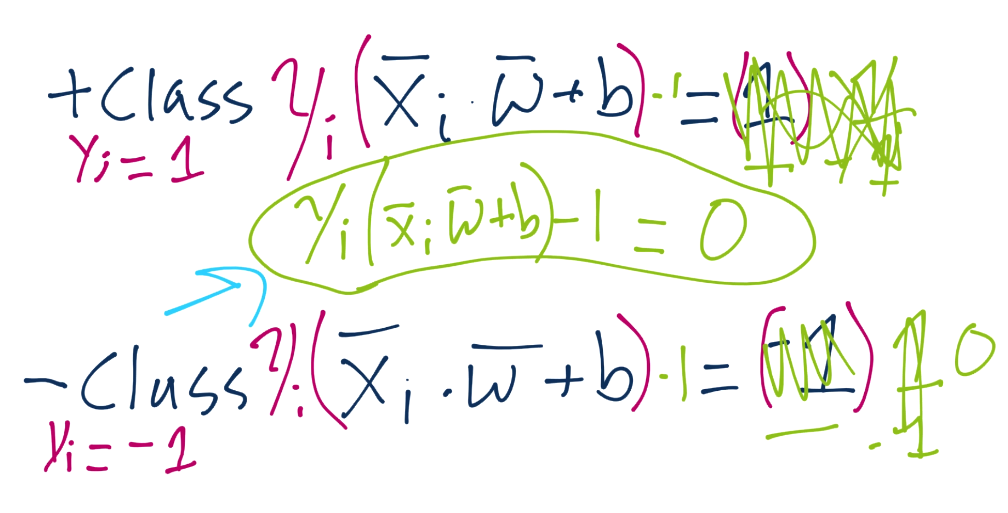 +Class yᵢ(x̄ᵢ · w̄ + b) - 1 =
yᵢ = 1
yᵢ(x̄ᵢ w̄ + b) - 1 = 0
-Class yᵢ(x̄ᵢ · w̄ + b) - 1 = 0
yᵢ = -1